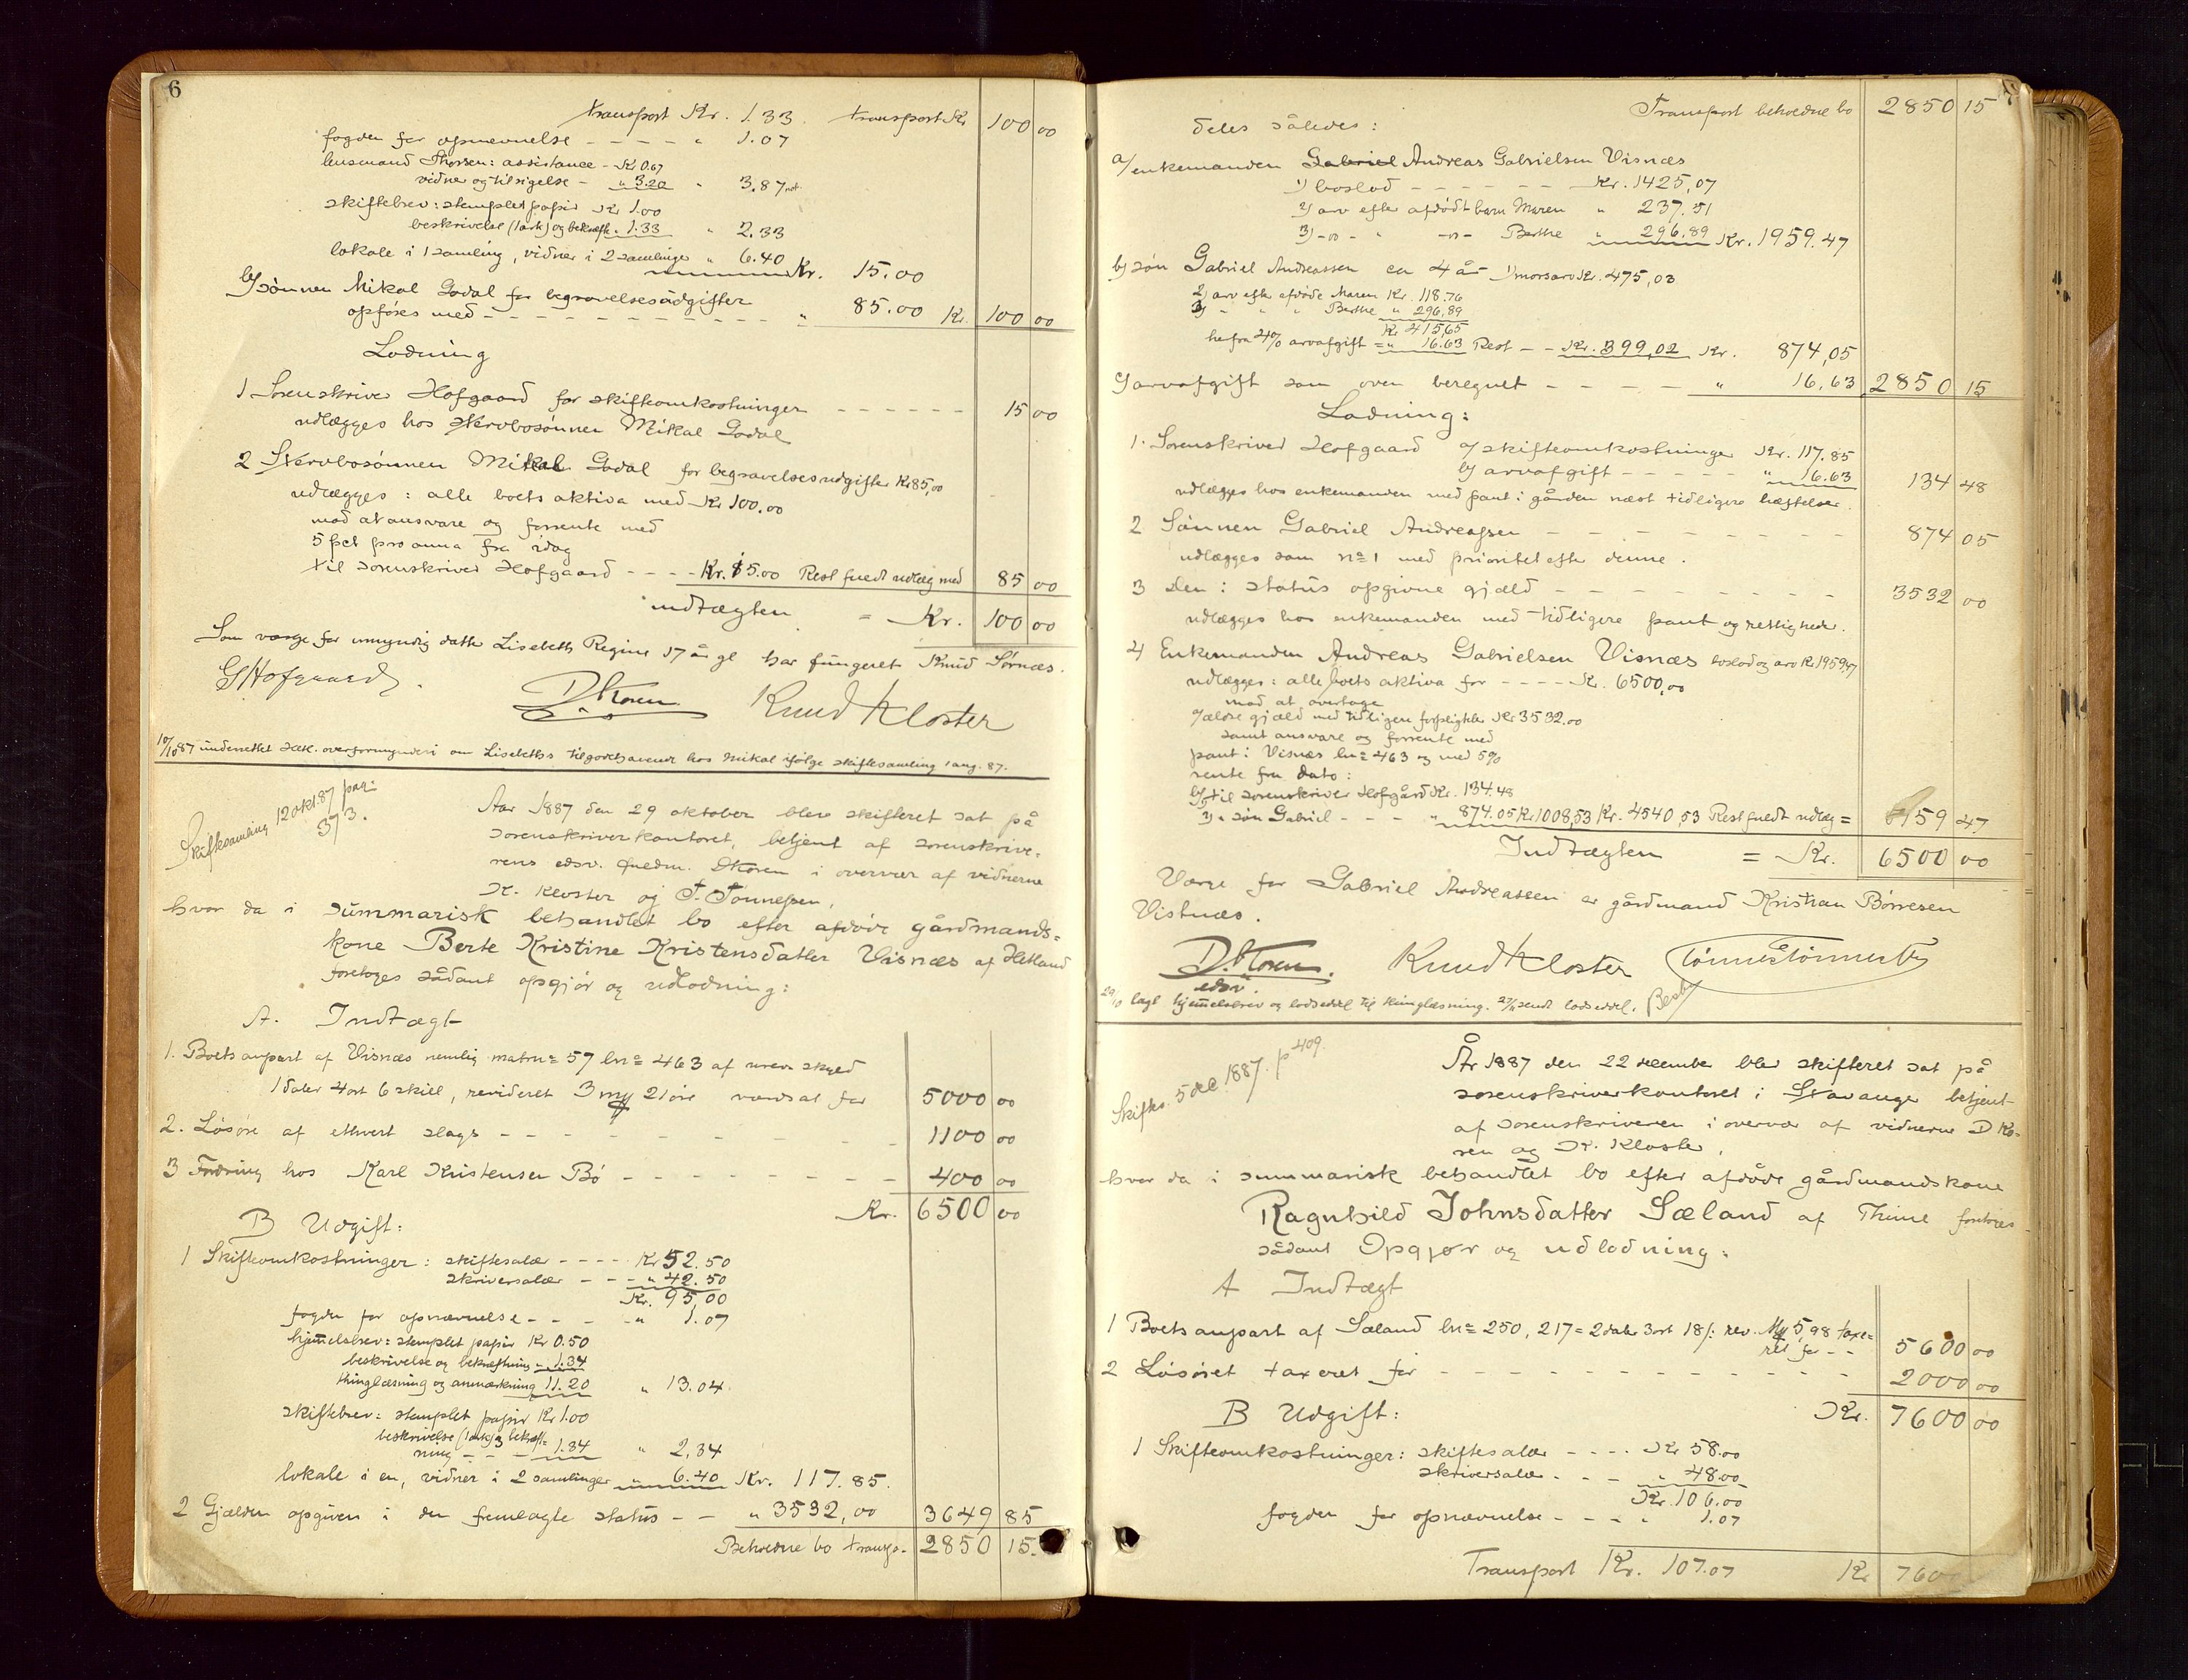 6
transport Kr. 1.33. transport Kr 100 00
fogden for opnævnelse - - - - " 1.07
lensmand Thorsen: assistance - Kr 0.67
vidner og tilsigelse - " 3.20 " 3.87
skiftebrev: stemplet papir Kr 1.00
beskrivelse (1 ark) og bekræft. " 1.33 " 2.33
lokale i 1 samling, vidner i 2 samlinger " 6.40 Kr. 15.00
b) sønnen Mikal Godal for begravelsesudgifter
opføres med - - - - - - - - - " 85.00 Kr. 100 00
Lodning
1 Sorenskriver Hofgaard for skifteomkostninger - - - - - - 15 00
udlægges hos stervbosønnen Mikal Godal
2 Stervbosønnen Mikal Godal for begravelsesudgifter Kr 85,00
udlægges: alle boets aktiva med Kr 100.00
mod at ansvare og forrente med
5 pct pro anno fra idag
til sorenskriver Hofgaard - - - - Kr. 15.00 Rest fuldt udlæg med 85 00
indtægten = Kr. 100 00
Som værge for umyndig datter Lisebeth Regine 17 år gl har fungeret Knud Sørnæs.
GHofgaard.
D. Koren Knud Kloster
10/10 87 underrettet Hetl. overformynderi om Lisebeths tilgodehavende hos Mikal ifølge skiftesamling 1 aug. 87.
Skiftesamling 12 okt. 87 pag:
373.
Aar 1887 den 29 oktober blev skifteret sat på
sorenskriverkontoret, betjent af sorenskrive-
rens edsv. fuldm. DKoren i overvær af vidnerne
K. Kloster og T. Tønnessen,
hvor da i summarisk behandlet bo efter afdøde gårdmands-
kone Berte Kristine Kristensdatter Visnæs af Hetland
foretoges sådant opgjør og udlodning:
A. Indtægt
1. Boets anpart af Visnæs nemlig matr n= 57 ln= 463 af urev. skyld
1 daler 4 ort 6 skill, revideret 3 my 21 øre værdsat for 5000 00
2. Løsøre af ethvert slags - - - - - - - - - 1100 00
3 Fordring hos Karl Kristensen Bø - - - - - - - - 400 00
Kr. 6500 00
B Udgift:
1 Skifteomkostninger: skiftesalær - - - - Kr 52.50
skriversalær - - - " 42.50
Kr. 95,00
fogden for opnævnelse - - - - " 1.07
hjemmelsbrev: stemplet papir Kr 0.50
beskrivelse og bekræftning " 1.34
thinglæsning og anmærkning 11.20 " 13.04
skiftebrev: stemplet papir Kr 1.00
beskrivelse (1 ark) og bekræft-
ning - - - 1.34 " 2,34
lokale i en, vidner i 2 samlinger " 6.40 Kr. 117.85.
2 Gjælden opgiven i den fremlagte status - - " 3532,00 3649 85
Beholdne bo transp. 2850 15.
Transport beholdne bo 2850 15
deles således:
a) enkemanden Gabriel Andreas Gabrielsen Visnæs
1) boslod - - - - - - - Kr. 1425,07
2) arv efter afdødt barn Maren " 237.51
3) -"- " -"- Berthe " 296,89 Kr. 1959.47
b) søn Gabriel Andreassen ca 4 år 1) morsarv Kr. 475,03
2) arv efter afdøde Maren Kr. 118.76
3) " " " Berthe " 296,89
Kr 415,65
herfra 4% arvafgift = " 16.63 Rest - - Kr. 399,02 Kr. 874,05
c) arvafgift som oven beregnet - - - - - " 16.63 2850 15
Lodning:
1. Sorenskriver Hofgaard a) skifteomkostninger Kr. 117.85
b) arvafgift - - - - - " 16.63 134 48
udlægges hos enkemanden med pant i gården næst tidligere hæftelser.
2 Sønnen Gabriel Andreassen - - - - - - - - 874 05
udlægges som n= 1 med prioritet efter denne.
3 Den i status opgivne gjæld - - - - - - - - 3532 00
udlægges hos enkemanden med tidligere pant og rettigheder.
4 Enkemanden Andreas Gabrielsen Visnæs boslod og arv Kr 1959,47
udlægges: alle boets aktiva for - - - - Kr. 6500,00
mod at overtage
a) ældre gjæld med tidligere forpligtelse Kr 3532.00
samt ansvare og forrente med
pant i Visnæs ln= 463 og med 5%
rente fra dato:
b) 1) til sorenskriver Hofgård Kr. 134.48
2) " søn Gabriel - - - - " 874.05 Kr 1008,53 Kr. 4540,53 Rest fuldt udlæg = 1959 47
Indtægten = Kr. 6500 00
Værge for Gabriel Andreassen er gårdmand Kristian Børresen
Visnæs.
D. Koren. Knud Kloster Tønnes Tønnessen
edsv.
29/10 lagt hjemmelsbrev og lodseddel til thinglæsning. 27/11 sendt lodseddel.
Skifts. 5 dec. 1887. p 409.
År 1887 den 22 december blev skifteret sat på
sorenskriverkontoret i Stavanger betjent
af sorenskriveren i overvær af vidnerne D Ko-
ren og K. Kloster,
hvor da i summarisk behandlet bo efter afdøde gårdmandskone
Ragnhild Johnsdatter Sæland af Thime foretoges
sådant Opgjør og udlodning:
A Indtægt
1 Boets anpart af Sæland ln= 250, 217 = 2 daler 3 ort 18 /: rev. My 5,98 taxe-
ret for - - 5600 00
2 Løsøret taxeret for - - - - - - - - - - - 2000 00
B Udgift: Kr. 7600 00
1 Skifteomkostninger: skiftesalær - - - - Kr 58.00
skriversalær - - - " 48.00
Kr. 106.00
fogden for opnævnelse - - - - " 1.07
Transport Kr. 107.07 Kr 7600